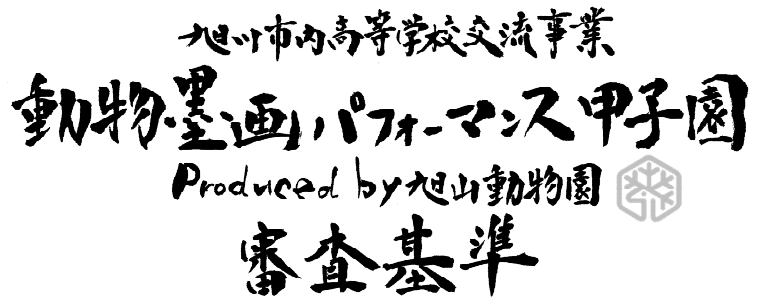 旭川市内高等学校交流事業
動物墨画パフォーマンス甲子園
Produced by 旭山動物園
審査基準